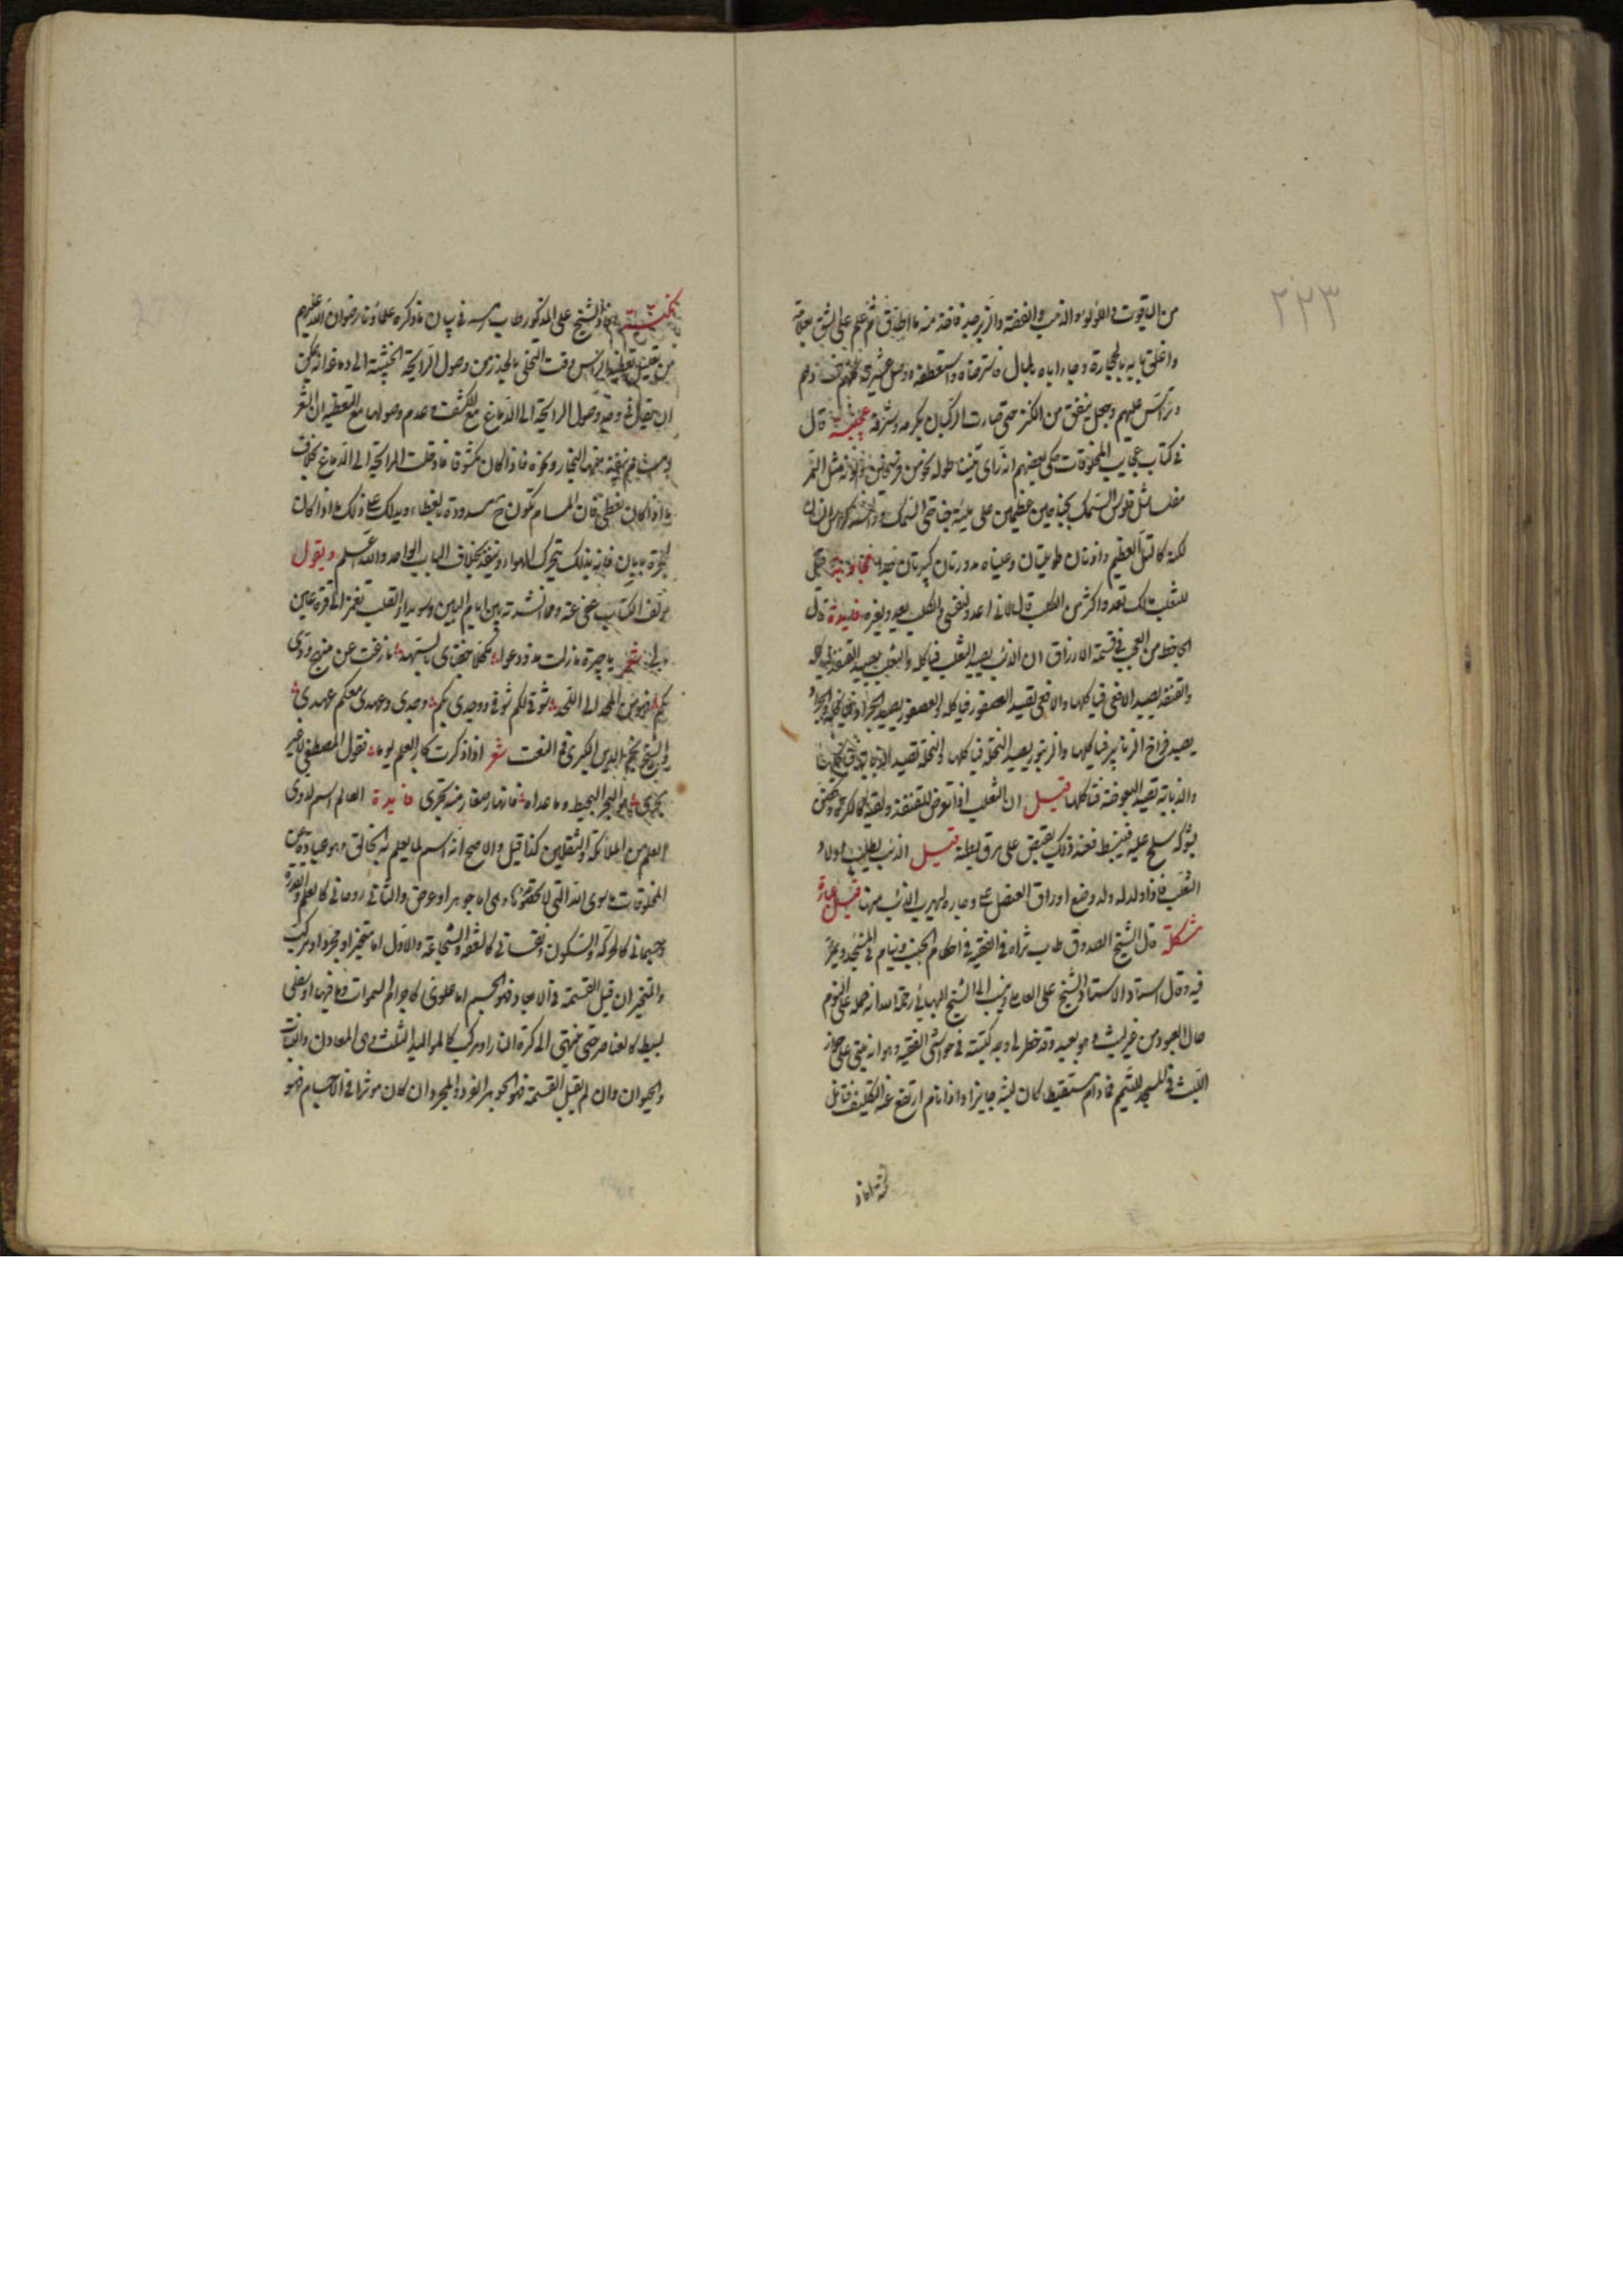 ٢٢٣
من الياقوت واللؤلؤ والذهب والفضة والزبرجد فاخذ منه ما اطاق ثم علم على الشق بعلامة
واغلق بابه بالحجارة
وراس عليهم وجعل ينفق من الكنز حتى صارت الركبان بكرمه وشرفه عجيبة قال
في كتاب عجايب المخلوقات حكى بعضهم انه راى تنينا طوله نحو من فرسخين ولونه مثل النمر
مفلسا مثل فلوس السمك بجناحين عظيمين على هيئة جناحي السمك وراسه كراس الانسان
لكنه كالتل العظيم واذنان طويلتان وعيناه مدورتان كبيرتان جدا قيل
للثعلب مالك تعدو اكثر من الكلب قال لاني اعدو لنفسي والكلب يعدو لغيره فايدة قال
الجاحظ من العجب في قسمة الارزاق ان الذئب يصيد الثعلب فياكله والثعلب يصيد القنفذ فياكله
والقنفذ يصيد الافعى فياكلها والافعى تصيد العصفور فياكله والعصفور يصيد الجراد فياكله والجراد
يصيد فراخ الزنانير فياكلها والزنبور يصيد النحلة فياكلها والنحلة تصيد الذبابة فتاكلها
والذبابة تصيد البعوضة فتاكلها قيل ان الثعلب اذا تعرض للقنفذ ولقيه كالكرة
بشوكه سلح عليه فينبسط فعند ذلك يقبض على مراق بطنه قيل الذئب يطلب اولاد
الثعلب فاذا ولد له ولد وضع اوراق العنصل على وجاره ليهرب الذئب منها قيل عبارة
مشكلة قال الشيخ الصدوق طاب ثراه في الفقيه في احكام الجنب وينام في المسجد ويمر
فيه وقال استاد الاستاد الشيخ على العاملي ونسب الى الشيخ البهائي رحمة الله انه حمله على النوم
حال العبور من غير لبث وهو بعيد وقد خطر لي وجه كتبته في حواشي الفقيه وهو انه مبني على جواز
اللبث في المسجد للمتيمم فمادام مستيقظا كان لبثه جايزا واذا نام ارتفع عنه التكليف فتامل
افاد الشيخ على المذكور طاب رمسه في بيان ما ذكره علماؤنا رضوان الله عليهم
من تعليل تغطية الراس وقت التخلي بالحذر من وصول الرايحة الخبيثة الى دماغه انه يمكن
ان يقال في وجه وصول الرايحة الى الدماغ مع الكشف وعدم وصولها مع التغطية ان الشعر
البخار ونحوه فاذا كان مكشوفا دخلت الرايحة الى الدماغ بخلاف
ما اذا كان مغطى فان المسام تكون مسدودة بالغطاء ويدلك على ذلك ما اذا كان
لحجرة بابان فانه بذلك يتحرك الهواء وينفذ بخلاف الباب الواحد والله اعلم ويقول
مولف الكتاب عفي عنه ومما انشدته بين ايام البين وسويداء القلب
شعر يا جيرة مازلت مذ ودعوا مكحلا جفناي بالسهد ما زغت عن منهج ودي
بكم من المهد الى اللحد شوقي لكم شوقي ووجدي بكم وجدي وعهدي معكم عهدي
وللشيخ نجم الدين الكبرى في النعت شعر اذا ذكرت بحار العلم يوما فقول المصطفى لا غير
يجري هو البحر المحيط وما عداه فانهار صغار منه تجري فايدة العالم اسم لذوى
العلم من الملائكة والثقلين كذا قيل والاصح انه اسم لما يعلم به الخالق وهو عبارة عن
المخلوقات ما سوى الله التي لا تحصى وهي اما جوهر او عرض والثاني روحاني كالعلم والقدرة
وجسماني كالحركة والسكون ونفساني كالعفة والشجاعة والاول اما متحيز او مجرد او مركب
والمتحيز ان قبل القسمة في الابعاد فهو الجسم اما علوي كاجرام السموات وما فيها او سفلى
بسيط كالعناصر حتى ينتهي الى كرة النار او مركب كالمواليد الثلث وهي المعادن والنبات
والحيوان وان لم يقبل القسمة فهو الجوهر الفرد والمجرد ان كان موثرا في الاجسام فهو